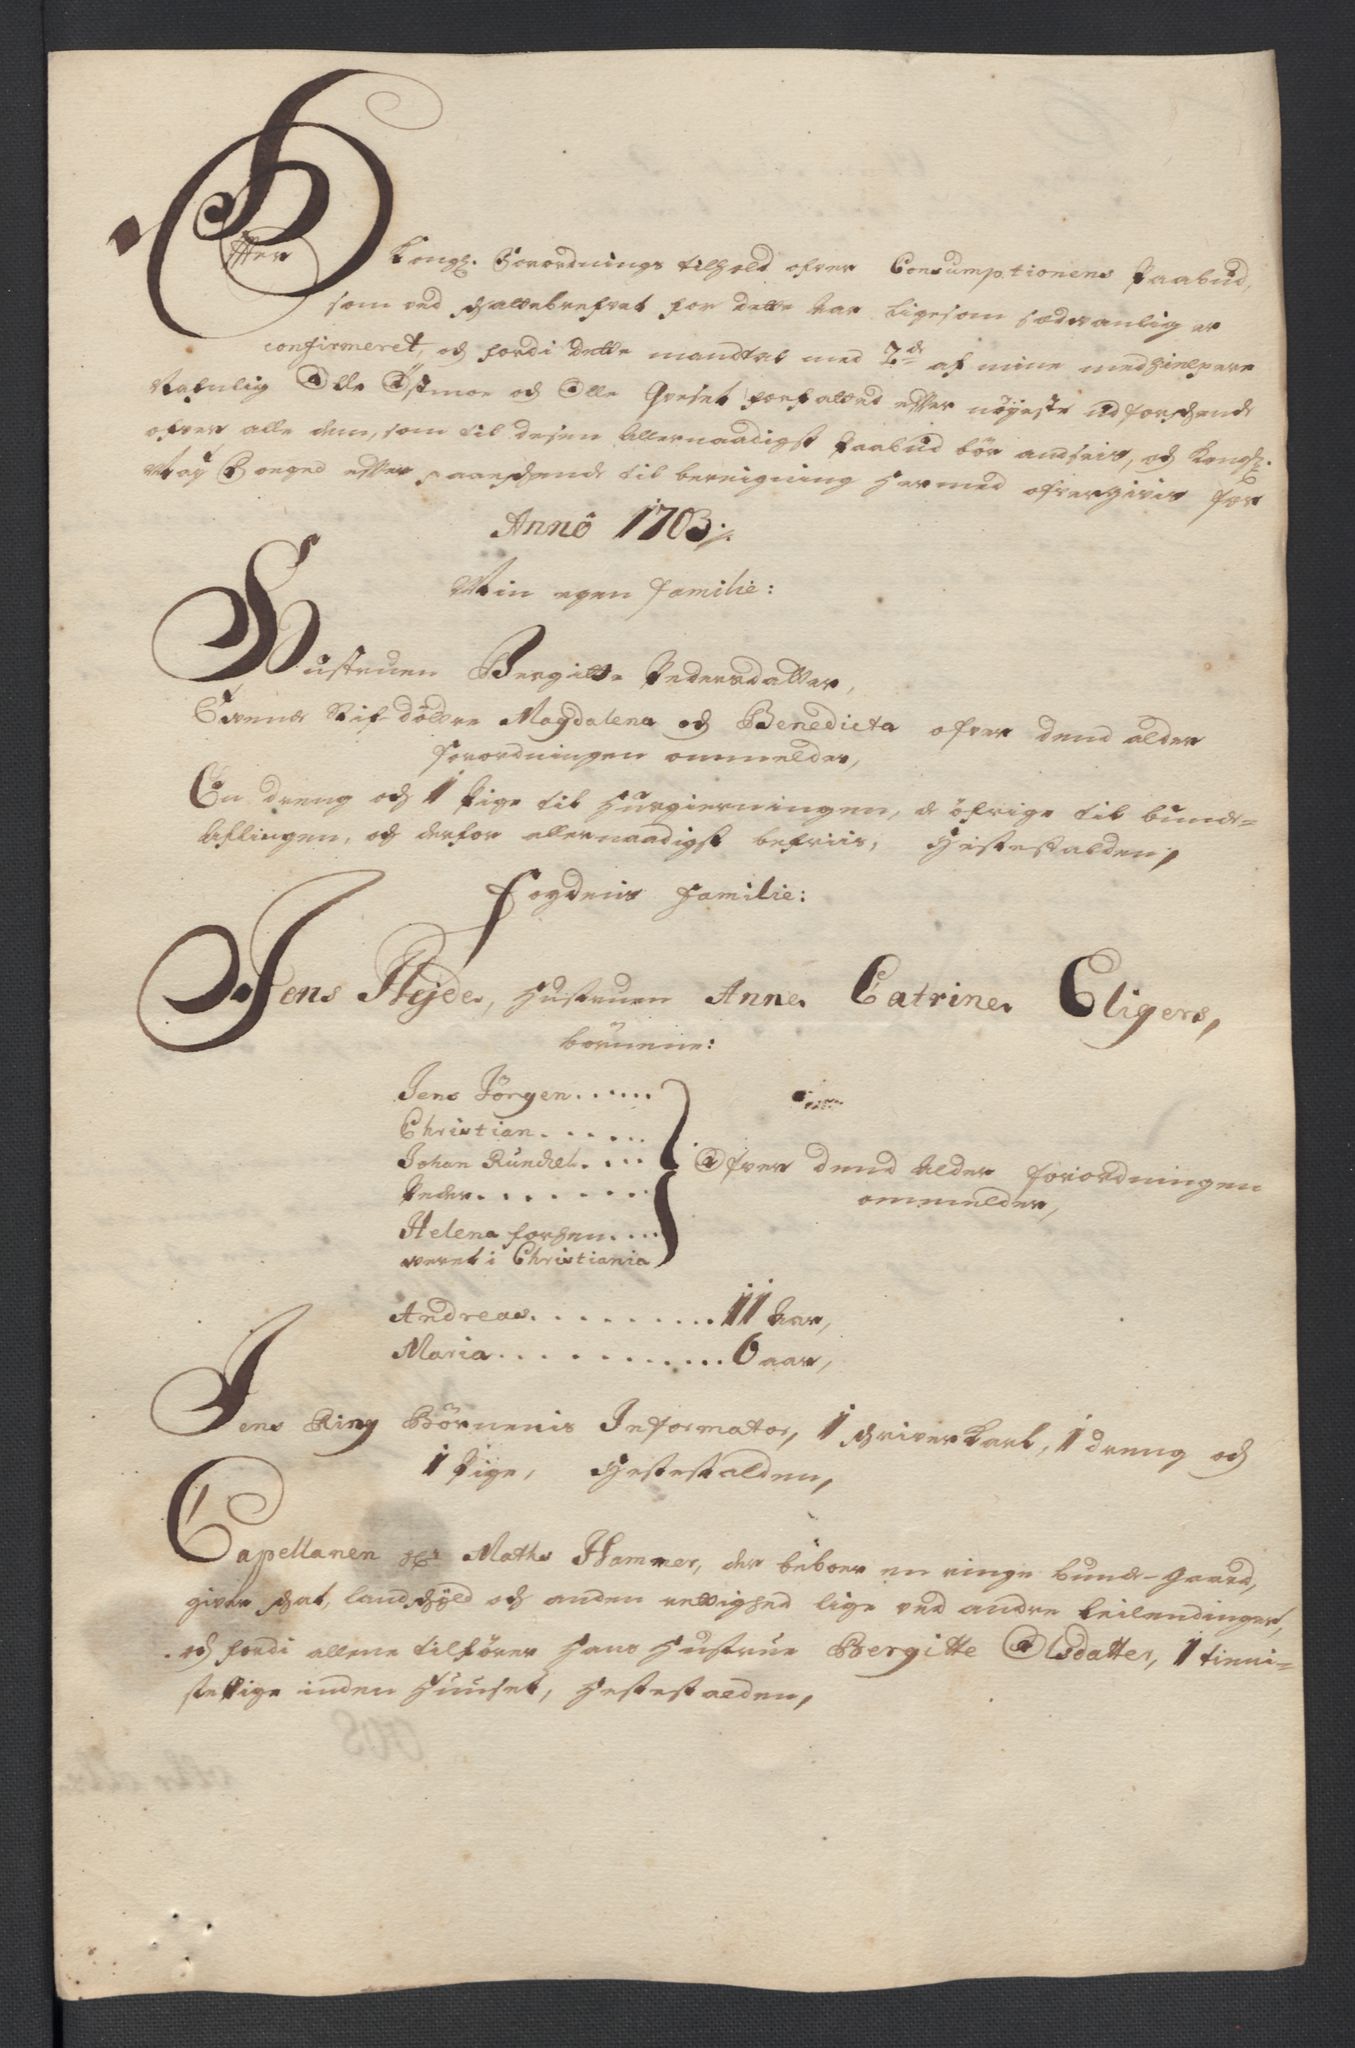 Efter Kongl. Forordnings tilhold ofver Consumptionens Paabud,
som ved Skattebrefvet for dette Aar ligesom sædvanlig er
confirmeret, och fordi dette mandtal med 2de af mine medhielpere
Nafnlig Olle Østmoe och Olle Qveset forfatted efter nøyeste udforskende
ofver alle dem, som til desen Allernaadigst Paabud bør andseis, och Kongl:
May Foeged efter paaeskende til bereigning hermed ofvergivis for
Anno 1703 ./.
Min egen familie:
Hustruen Bergitte Pedersdatter,
Tvende Stif døttre Magdalena och Benedicta ofver dend alder
forordningen ommelder,
En dreng och 1 Pige til Husgierningen, de øfrige til bunde-
Aflingen, och derfor allernaadigst befriis, Hestestalden,
Fogdens familie:
Jens Hyde, Hustruen Anne Catrine Eligers,
børnene:
Jens Jørgen......
Christian.......
Johan Rundtel....
Peder........
Ofver dend Alder forordningen
ommelder,
Helena forhen....
veret i Christiania
Andreas..........11 Aar,
Maria............6 aar,
Jens Ring Børnenis Informator, 1 skriverkarl, 1 dreng och
1 Pige, Hestestalden,
Capellanen Hr Maths Hammer, der beboer en ringe bunde-gaard,
giver skat, landskyld och anden rettighed lige ved andre leilendinger,
och fordi allene tilfører hans Hustrue Bergitte Olsdatter, 1 tieni-
stePige inden Huuset, Hestestalden,